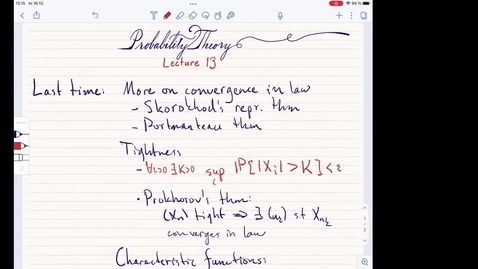 13.15 to 16.12.
94 %
Probability Theory
Lecture 13
Last time: More on convergence in law
- Skorokhod's repr. thm
- Portmanteau thm
Tightness
- ∀ε>0 ∃K>0 sup_i P[|X_i|>K]<ε
• Prokhorov's thm:
(X_n) tight ⇒ ∃ (n_k) st X_{n_k}
converges in law
Characteristic functions: